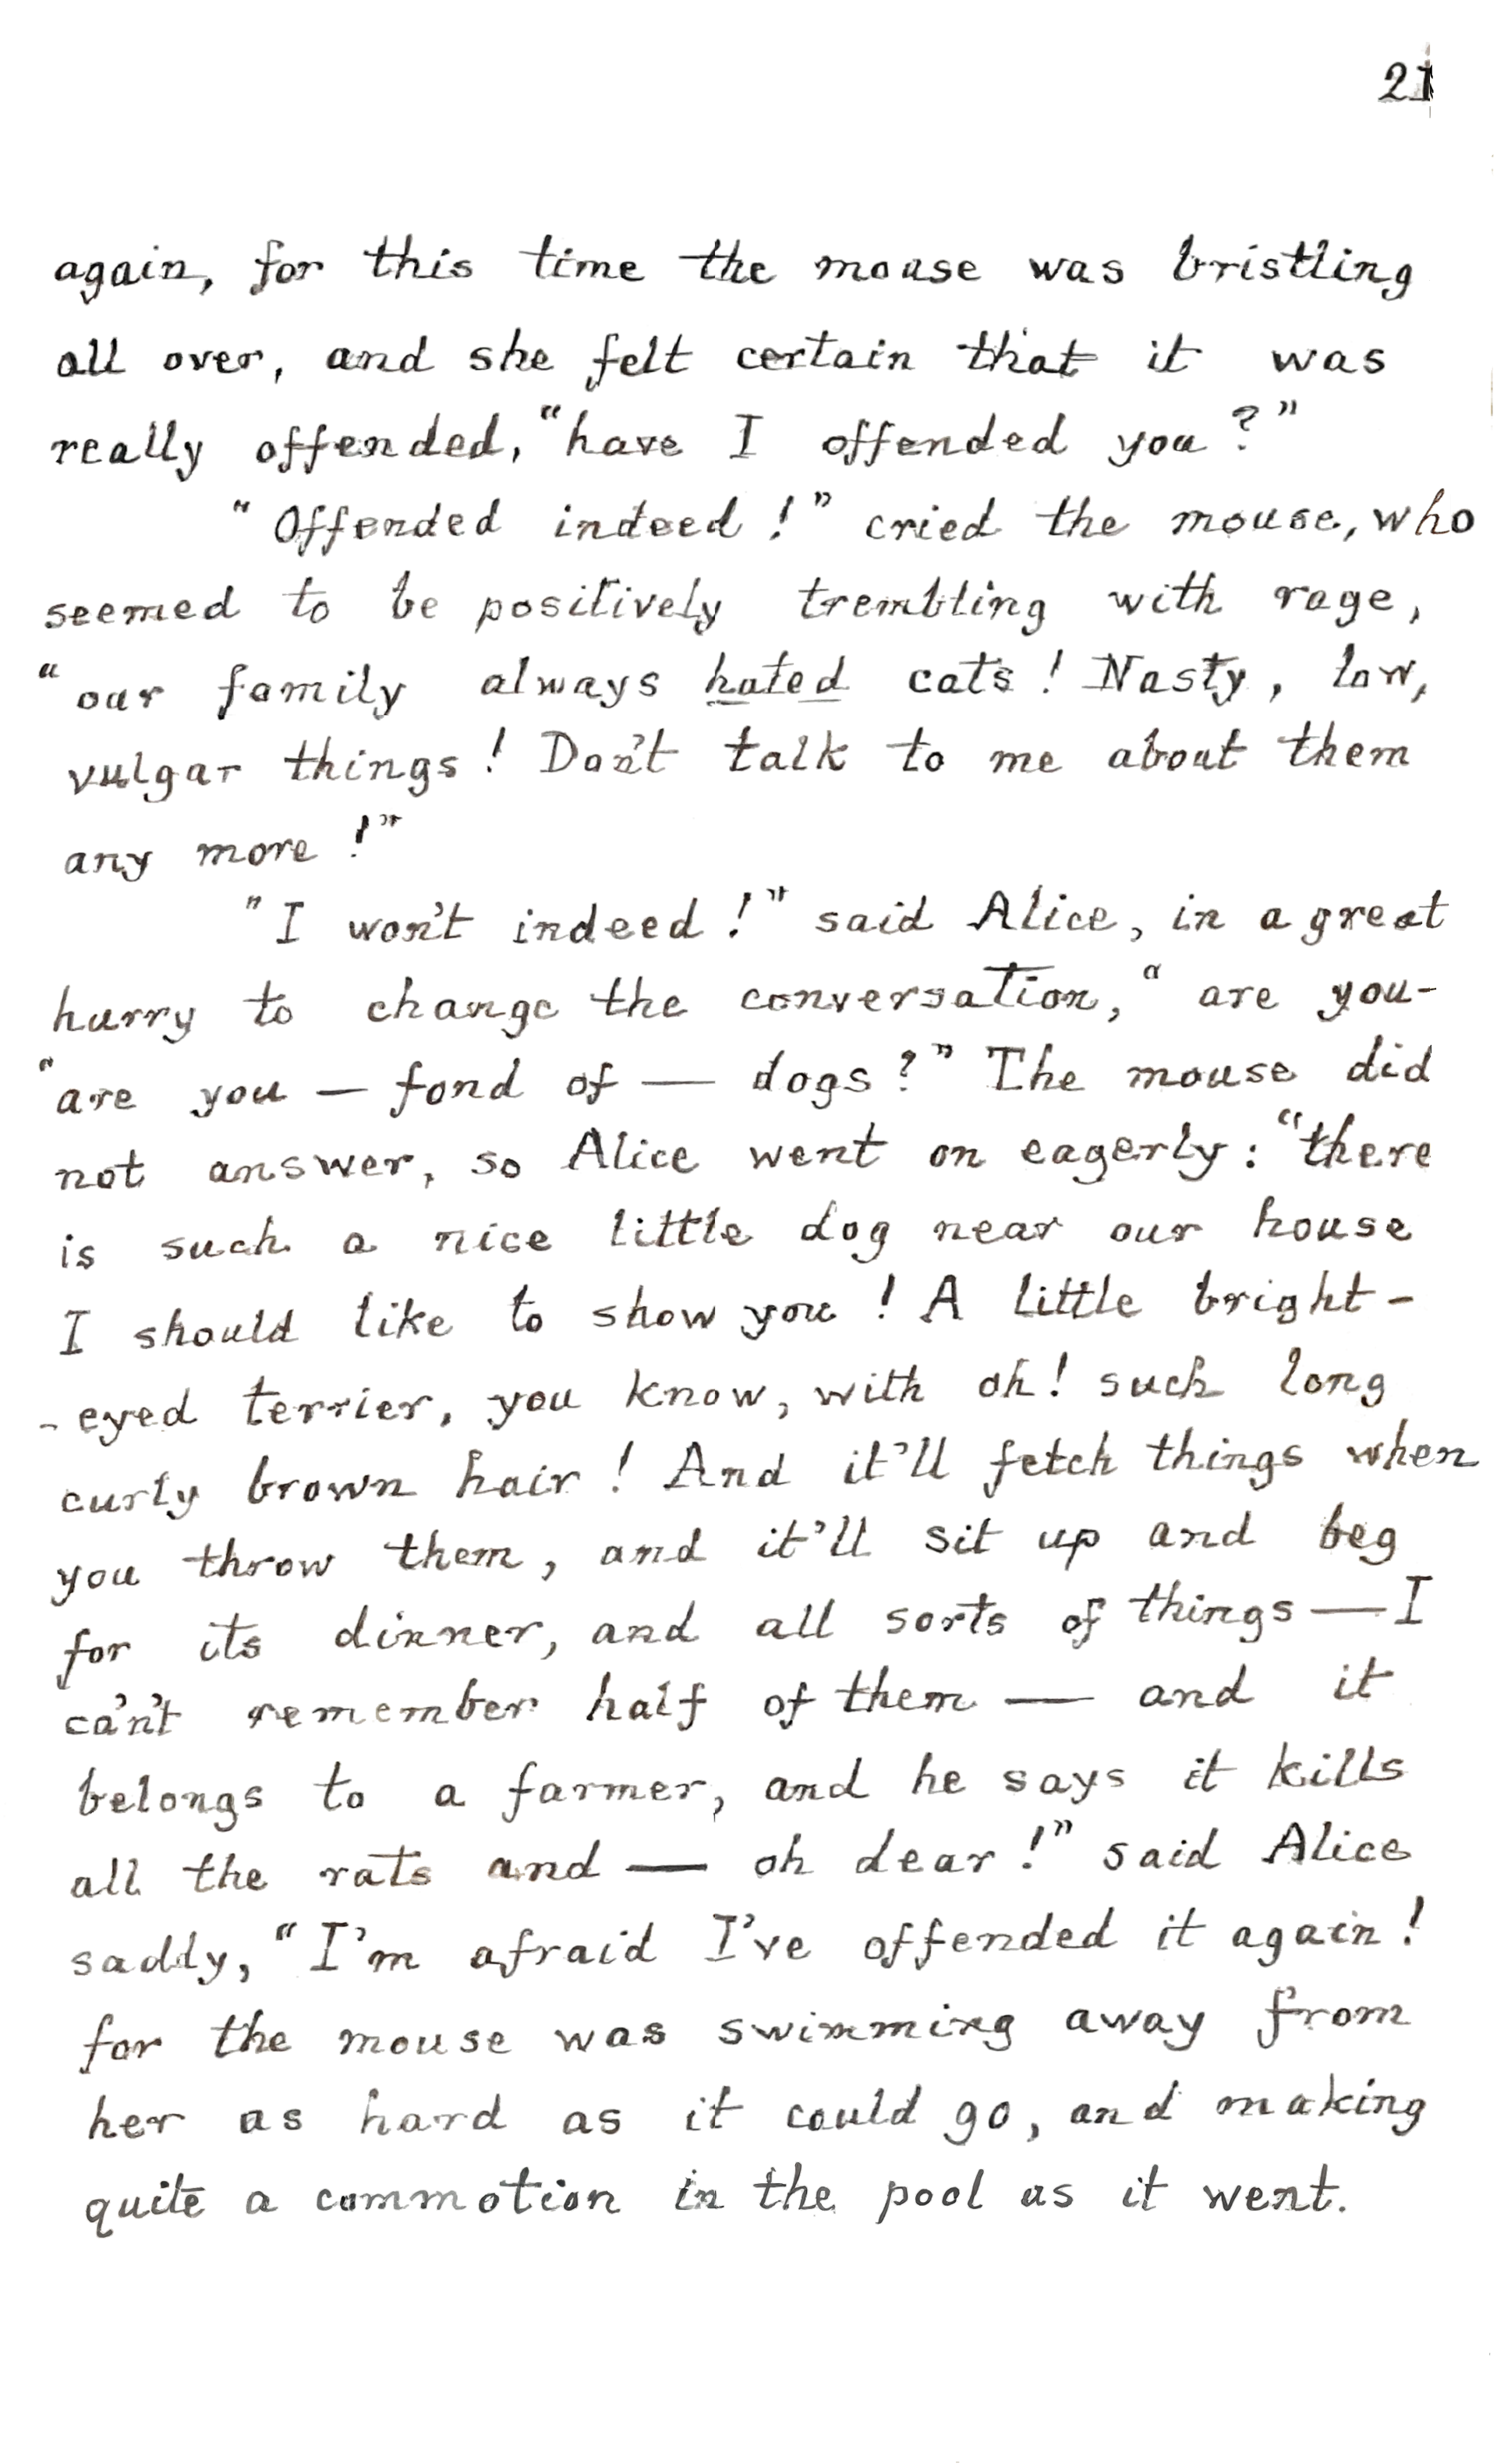 21
again, for this time the mouse was bristling
all over, and she felt certain that it was
really offended, “have I offended you?”
“Offended indeed!” cried the mouse, who
seemed to be positively trembling with rage,
“our family always hated cats! Nasty, low,
vulgar things! Don't talk to me about them
any more!”
"I won't indeed!" said Alice, in a great
hurry to change the conversation, “are you-
“are you — fond of — dogs?” The mouse did
not answer, so Alice went on eagerly: “there
is such a nice little dog near our house
I should like to show you! A little bright-
-eyed terrier, you know, with oh! such long
curly brown hair! And it'll fetch things when
you throw them, and it'll sit up and beg
for its dinner, and all sorts of things — I
ca'n't remember half of them — and it
belongs to a farmer, and he says it kills
all the rats and — oh dear!” said Alice
sadly, “I'm afraid I've offended it again!
for the mouse was swimming away from
her as hard as it could go, and making
quite a commotion in the pool as it went.